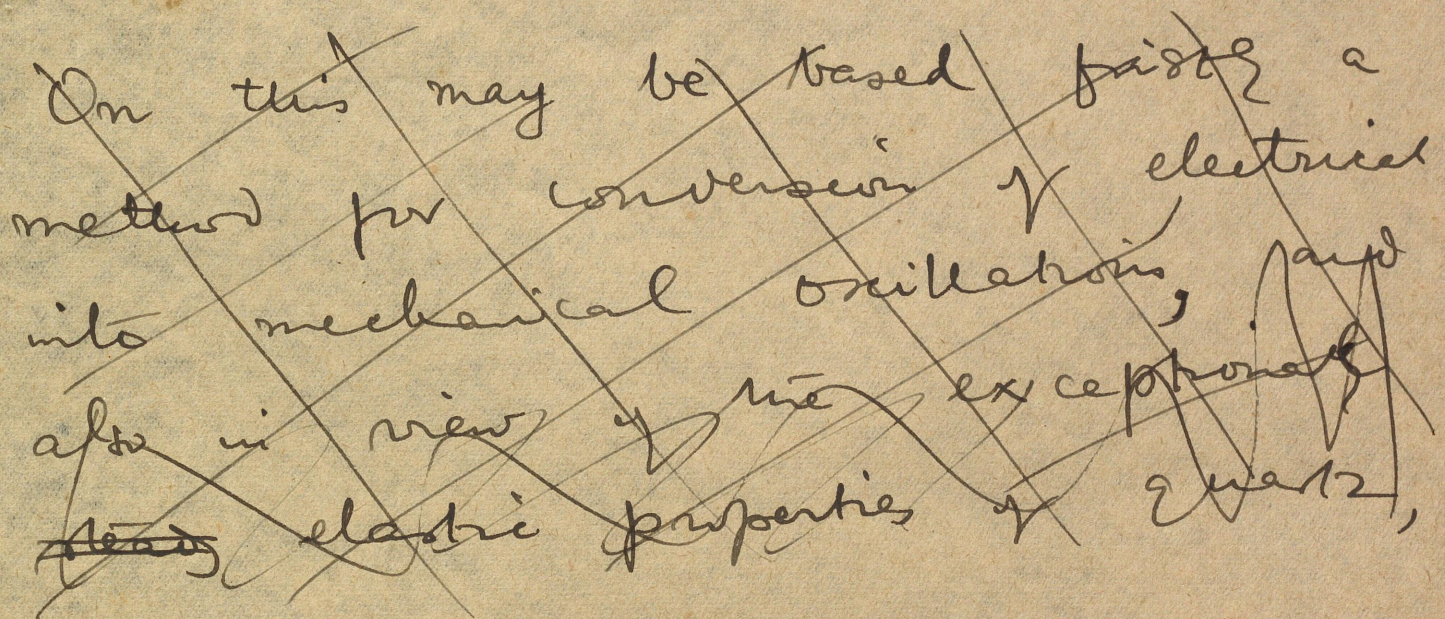 On this may be based firstly a
method for conversion of electrical
into mechanical oscillations, and
also in view of the exceptional
steady elastic properties of quartz,